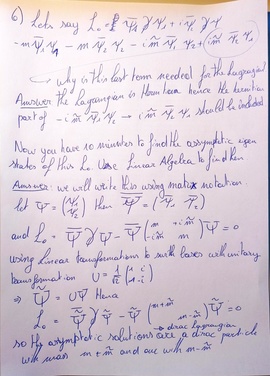 6) Lets say L₀ = i ψ̄₁ ∂̸ ψ₁ + i ψ̄₂ ∂̸ ψ₂
- m ψ̄₁ ψ₁ - m ψ̄₂ ψ₂ - i m̃ ψ̄₁ ψ₂ + (i m̃ ψ̄₂ ψ₁)
↳ why is this last term needed for the lagrangian
Answer the Lagrangian is Hermitean hence the hermitian
part of - i m̃ ψ̄₁ ψ₂ → i m̃ ψ̄₂ ψ₁ should be included
Now you have 10 minutes to find the assymptotic eigen
states of this L₀. Use Linear Algebra to find them.
Answer: we will write this using matrix notation.
let Ψ = (ψ₁ ψ₂) then Ψ̄ = (ψ̄₁ ψ̄₂)
and L₀ = Ψ̄ ∂̸ Ψ - Ψ̄ (m + i m̃ - i m̃ m) Ψ = 0
using linear transformations to switch bases with unitary
transformation U = 1/√2 (1 i 1 -i)
⇒ Ψ̃ = UΨ Hence
L₀ = Ψ̃ ∂̸ Ψ̃ - Ψ̃ (m + m̃ m - m̃) Ψ̃ = 0
↳ dirac lagrangian
so the asymptotic solutions are a dirac particle
with mass m + m̃ and one with m - m̃